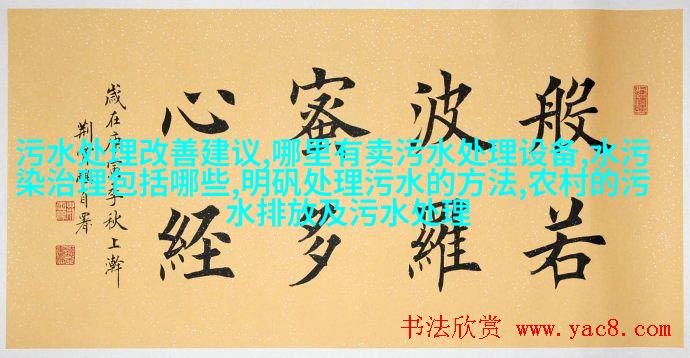 般若
波羅
蜜多
心経
歲在庚寅季秋上澣
荆自署
污水处理改善建议,哪里有卖污水处理设备,水污
染治理包括哪些,明矾处理污水的方法,农村的污
水排放及污水处理
书法欣赏 www.yac8.com